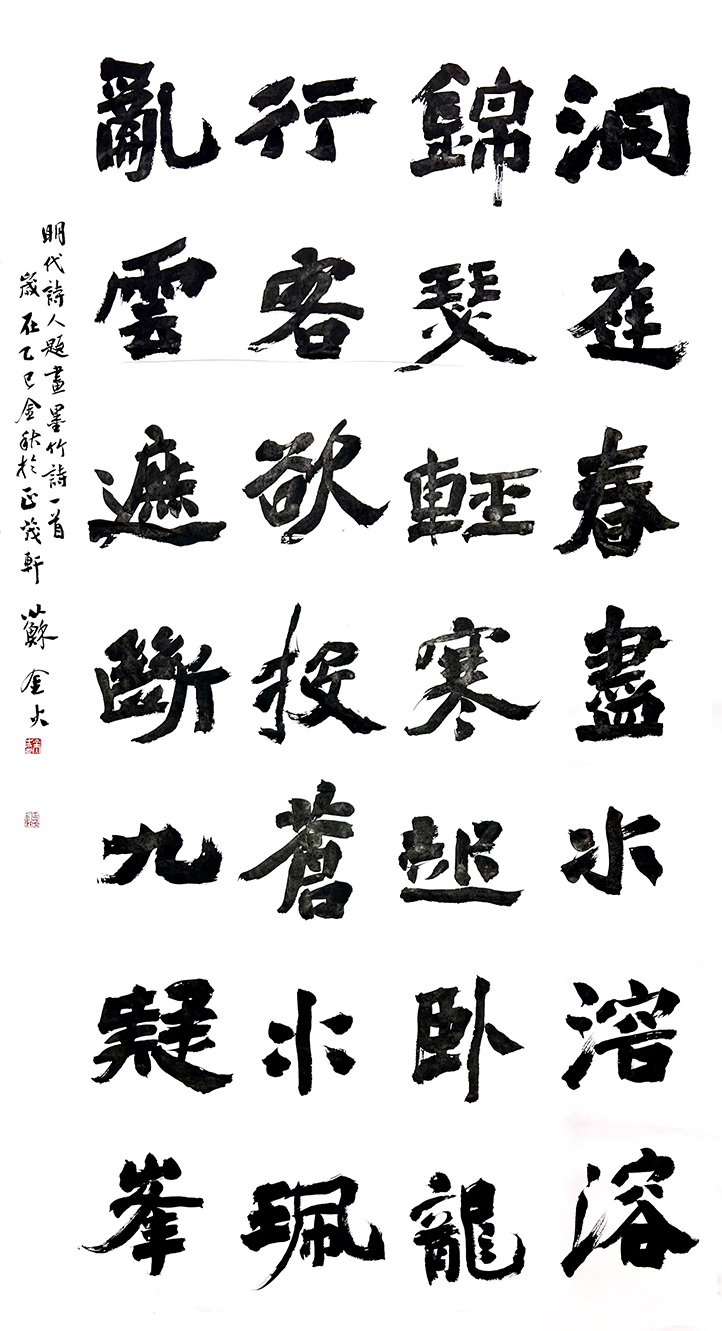 洞庭春盡水溶溶
錦瑟輕寒起臥龍
行客欲投蒼水珮
亂雲遮斷九疑峯
明代詩人題畫墨竹詩一首
歲在乙巳金秋於正茂軒 蘇金火